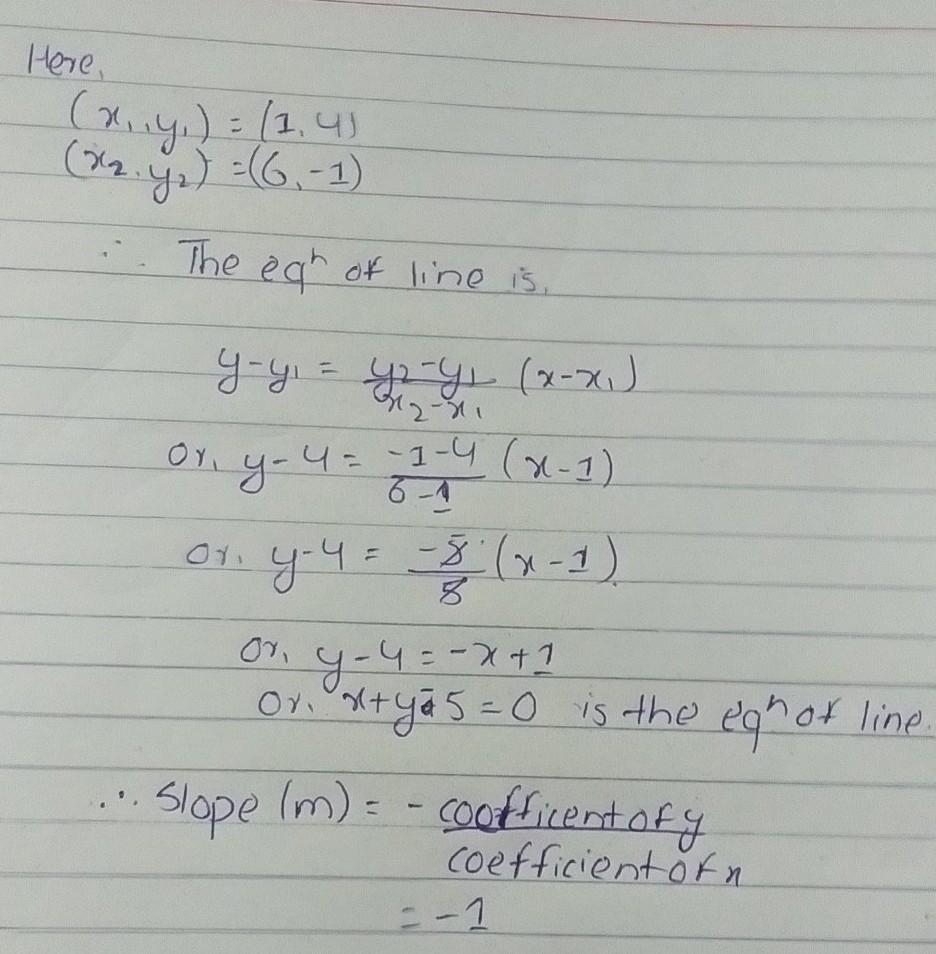 Here,
(x₁, y₁) = (1, 4)
(x₂, y₂) = (6, -1)
∴ The eqⁿ of line is,
y-y₁ = (y₂-y₁)/(x₂-x₁) (x-x₁)
Or, y-4 = (-1-4)/(6-1) (x-1)
Or, y-4 = -5/5 (x-1)
Or, y-4 = -x+1
Or, x+y-5=0 is the eqⁿ of line.
∴ Slope (m) = - cooefficent of y / coefficient of x
= -1